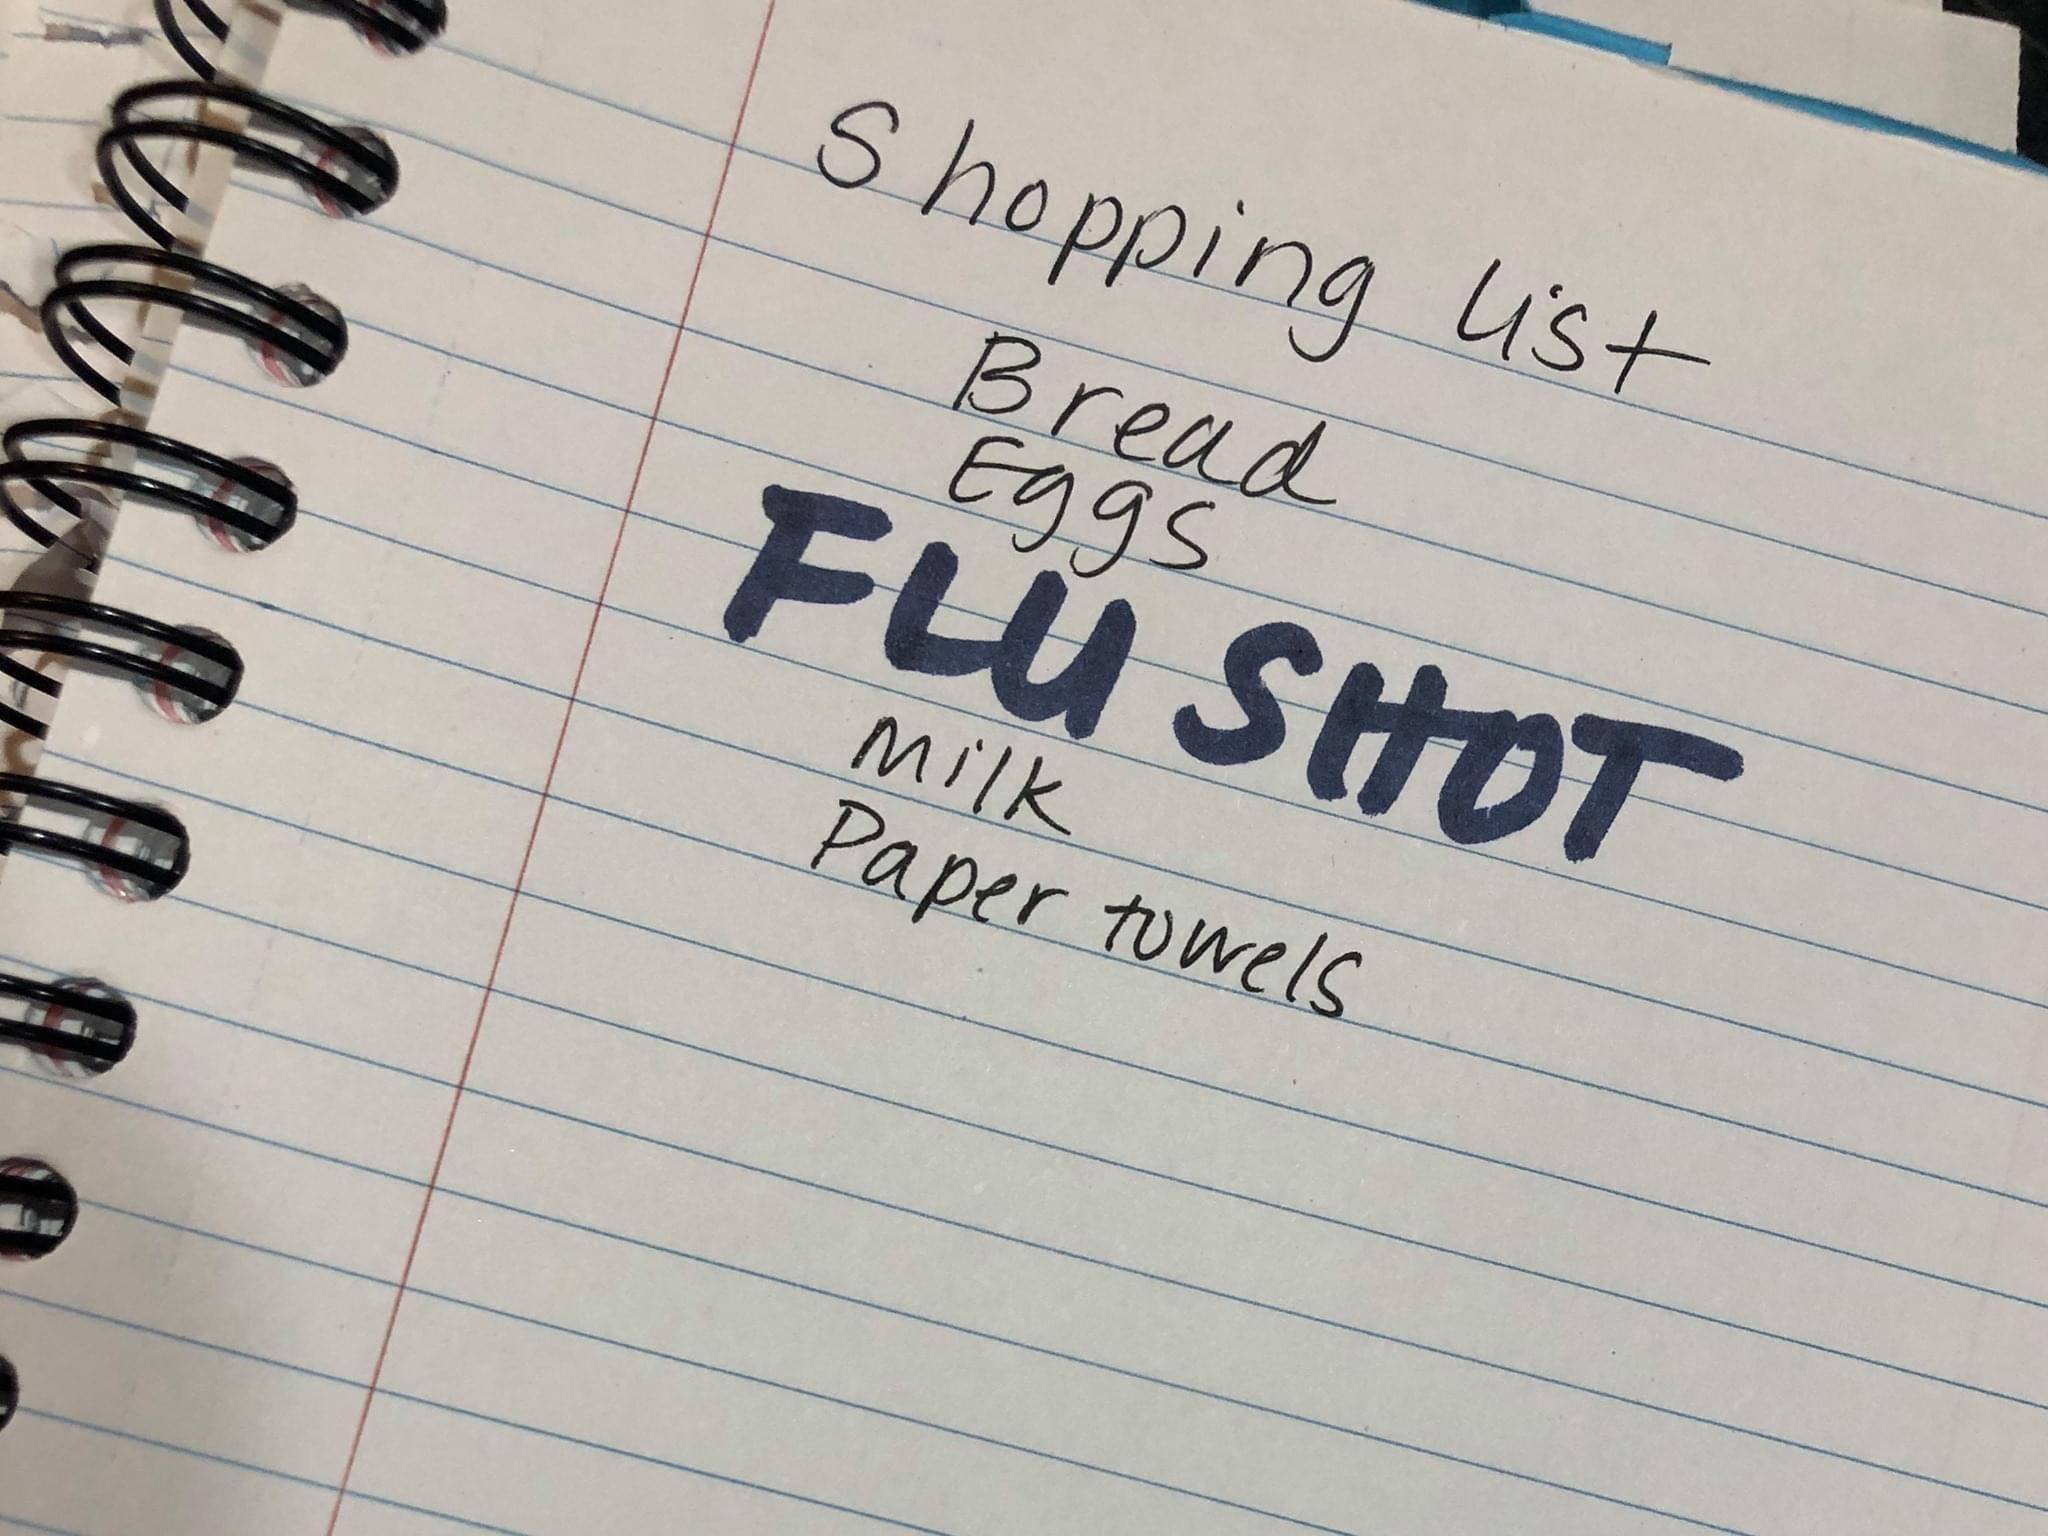 Shopping list
Bread
Eggs
FLU SHOT
Milk
Paper towels